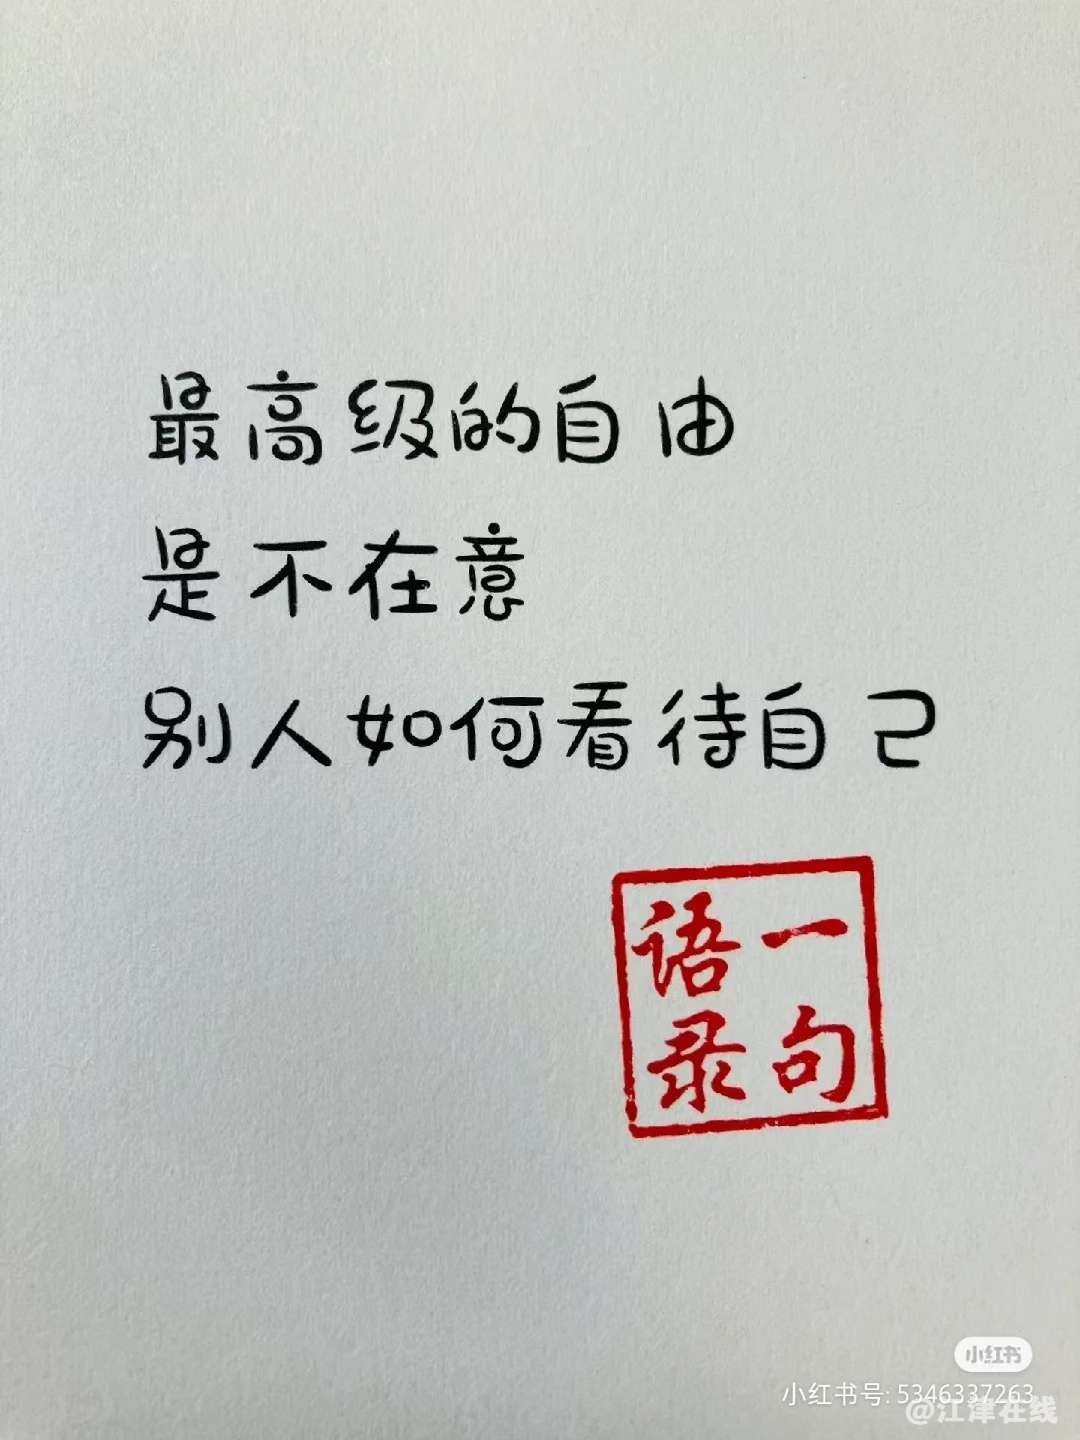 最高级的自由
是不在意
别人如何看待自己
一句
语录
小红书
小红书号: 5346337263
@江津在线